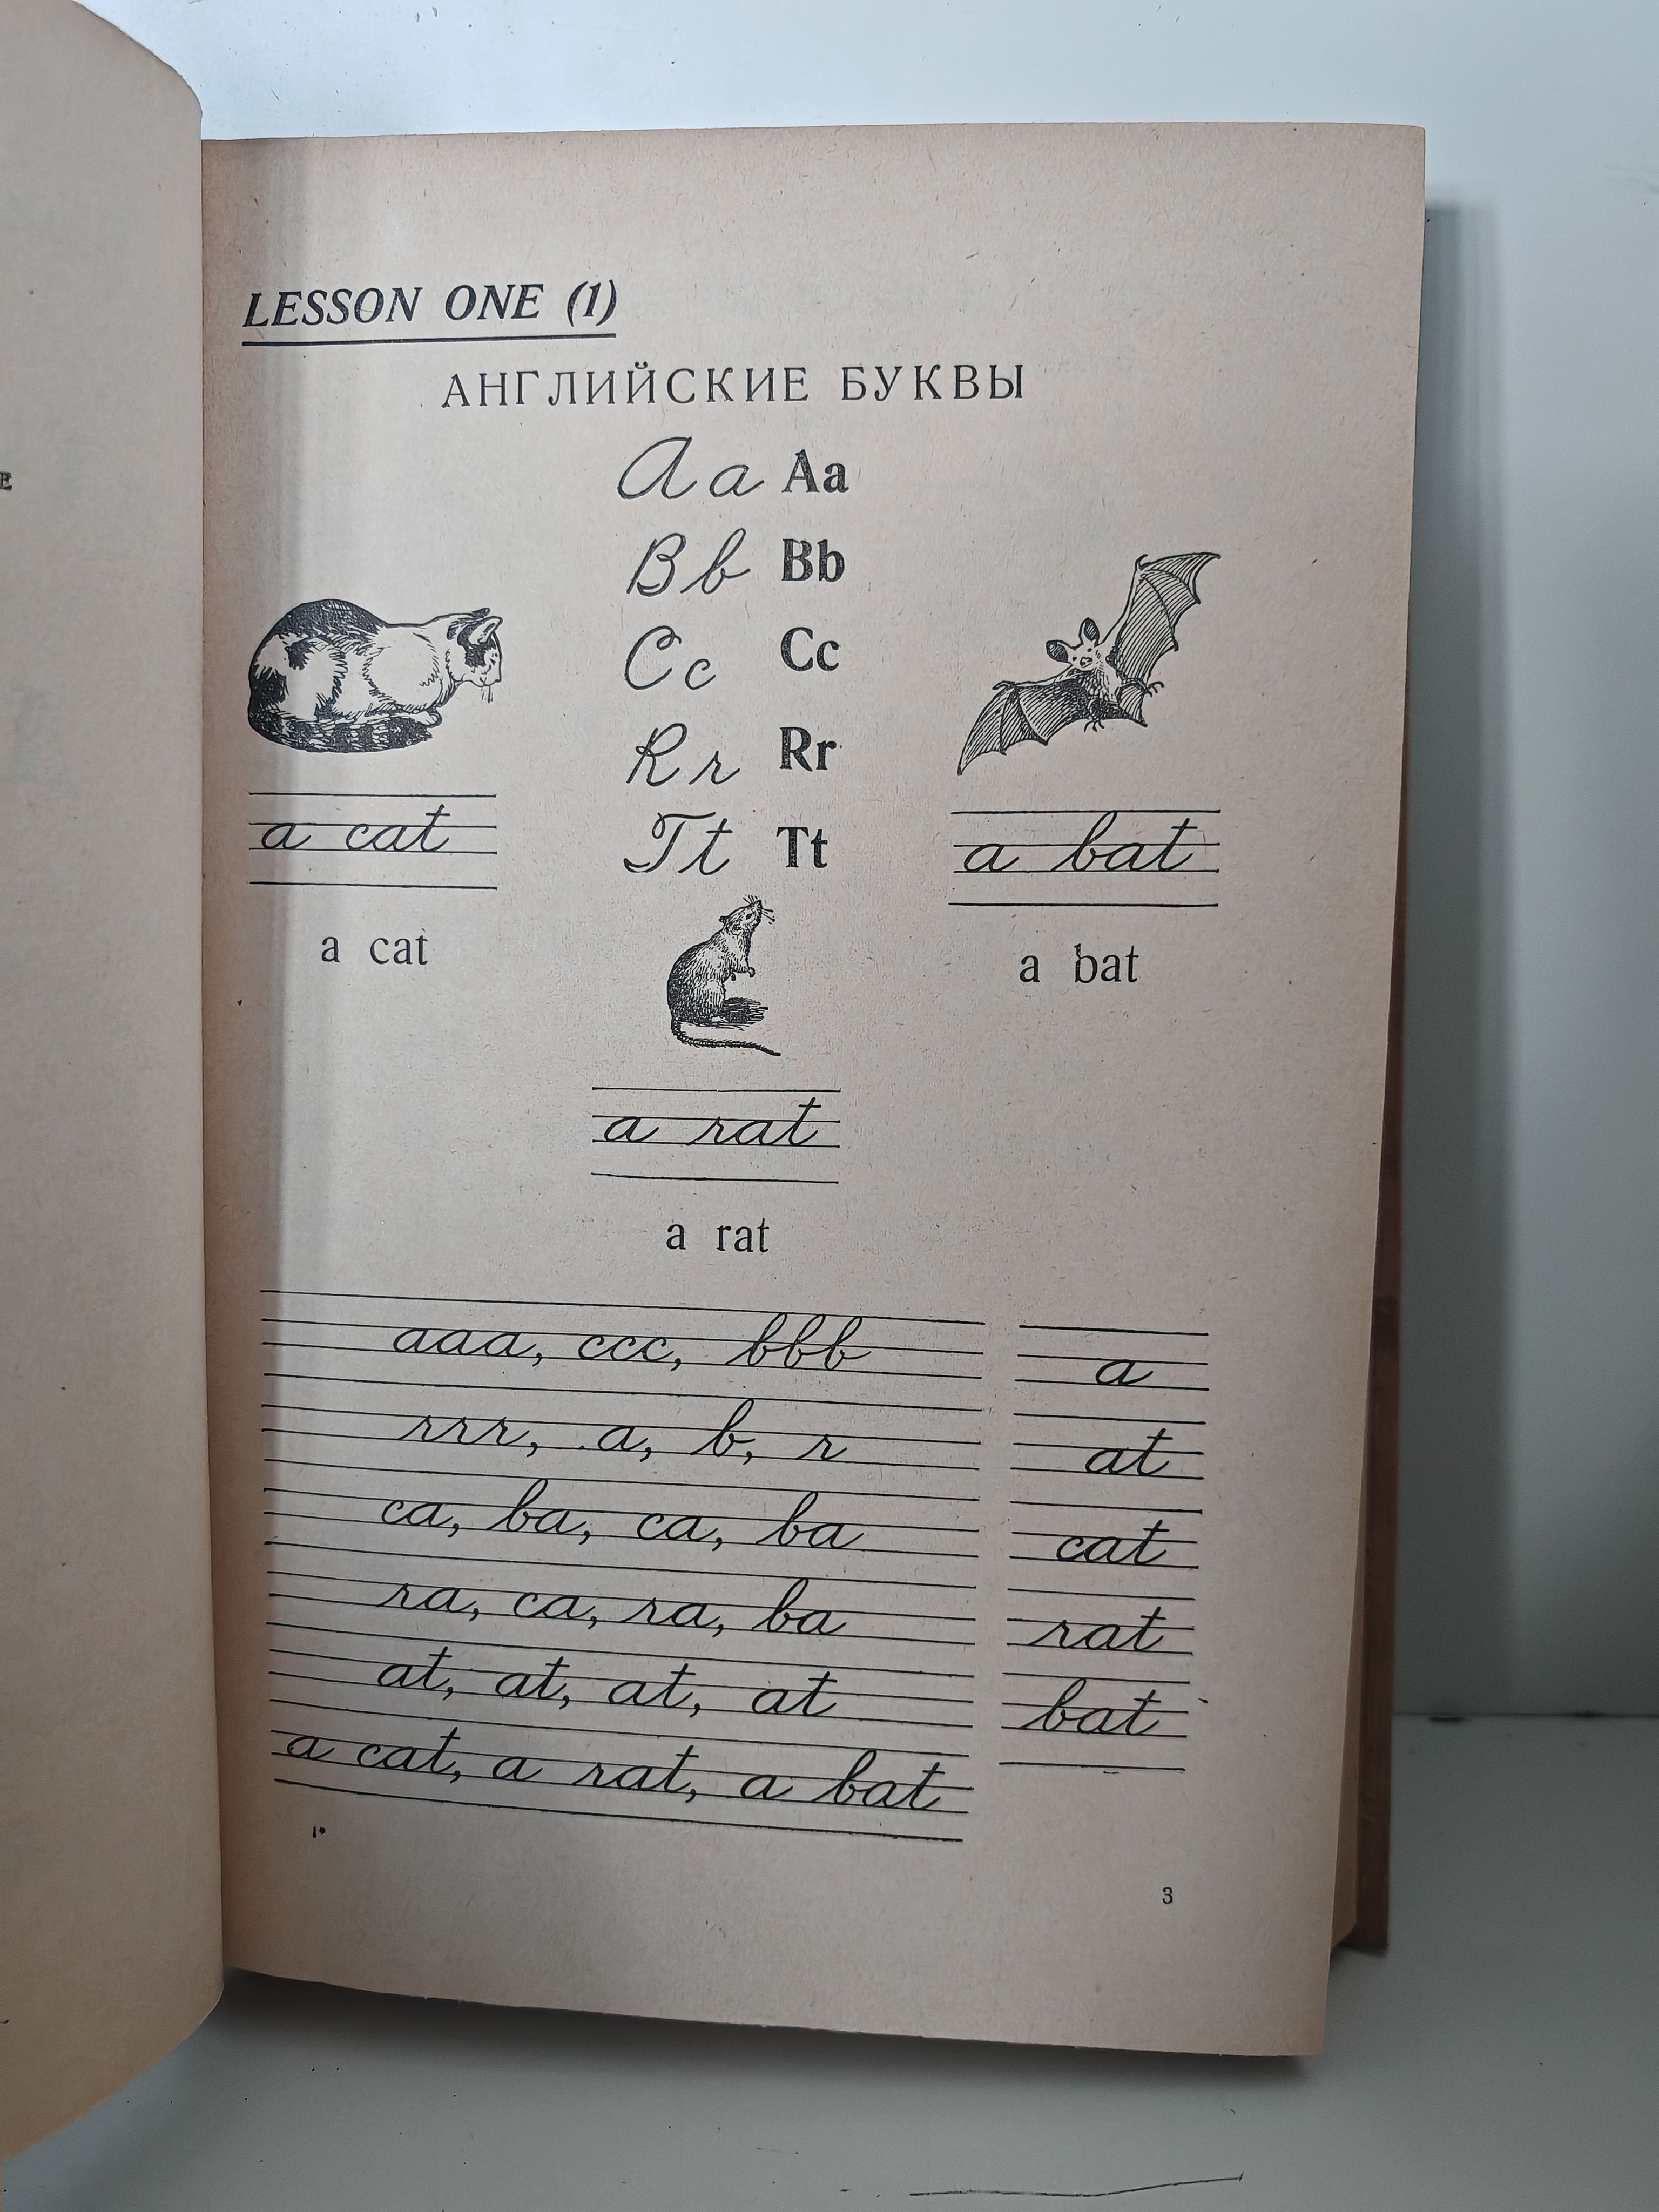 E
LESSON ONE (1)
АНГЛИЙСКИЕ БУКВЫ
Aa Aa
Bb Bb
Cc Cc
Rr Rr
Tt Tt
a cat
a cat
a bat
a bat
a rat
a rat
aaa, ccc, bbb
rrr, a, b, r
ca, ba, ca, ba
ra, ca, ra, ba
at, at, at, at
a cat, a rat, a bat
a
at
cat
rat
bat
1*
3